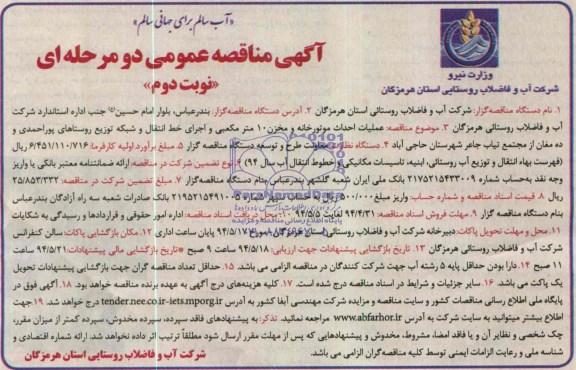 «آب سالم برای جهانی سالم»
آگهی مناقصه عمومی دو مرحله ای
«نوبت دوم»
وزارت نیرو
شرکت آب و فاضلاب روستایی استان هرمزگان
۱. نام دستگاه مناقصه‌گزار: شرکت آب و فاضلاب روستائی استان هرمزگان ۲. آدرس دستگاه مناقصه‌گزار: بندرعباس، بلوار امام حسین(ع) جنب اداره استاندارد شرکت
آب و فاضلاب روستائی هرمزگان ۳. موضوع مناقصه: عملیات احداث موتورخانه و مخزن ۱۰ متر مکعبی و اجرای خط انتقال و شبکه توزیع روستاهای پوراحمدی و
ده مغان از مجتمع تیاب جاعر شهرستان حاجی آباد ۴. دستگاه نظارت: معاونت طرح و توسعه دستگاه مناقصه گزار ۵. مبلغ برآورد اولیه کارفرما: ۶/۴۵۱/۱۱۰/۷۱۶ ریال
(فهرست بهاء انتقال و توزیع آب روستائی، ابنیه، تاسیسات مکانیکی و خطوط انتقال آب سال ۹۴) ۶. نوع تضمین شرکت در مناقصه: ارائه ضمانتنامه معتبر بانکی یا واریز
وجه نقد به‌حساب شماره ۲۱۷۵۲۱۵۴۳۳۰۰۹ بانک ملی ایران شعبه گلشهر بندرعباس بنام دستگاه مناقصه‌گزار ۷. مبلغ تضمین شرکت در مناقصه: ۲۵/۸۵۳/۳۳۲
ریال ۸. قیمت اسناد مناقصه و شماره حساب: واریز مبلغ ۵۰۰/۰۰۰ ریال به حساب شماره ۲۱۷۵۲۱۵۴۹۱۰۰۵ بانک صادرات شعبه سه راه آزادگان بندرعباس
بنام دستگاه مناقصه گزار ۹. مهلت فروش اسناد مناقصه: ۹۴/۴/۳۱ لغایت ۹۴/۵/۵ ۱۰. محل دریافت اسناد مناقصه: اداره امور حقوقی و قراردادها و رسیدگی به شکایات
۱۱. محل و مهلت تحویل پاکات: دبیرخانه شرکت آب و فاضلاب روستائی استان هرمزگان مورخ ۹۴/۵/۱۷ پایان ساعت اداری ۱۲. مکان بازگشایی پاکات: سالن کنفرانس
شرکت آب و فاضلاب روستائی هرمزگان ۱۳. تاریخ بازگشایی پیشنهادات جهت ارزیابی: ۹۴/۵/۱۸ ساعت ۹ صبح *تاریخ بازگشایی مالی پیشنهادات: ۹۴/۵/۲۱ ساعت
۱۱ صبح ۱۴. دارا بودن حداقل پایه ۵ رشته آب جهت شرکت کنندگان در مناقصه الزامی می باشد. ۱۵. حداقل تعداد مناقصه گران جهت بازگشایی پیشنهادات تحویل
یک پاکت می باشد. ۱۶. سایر جزئیات و شرایط در اسناد مناقصه درج شده است. ۱۷. کلیه هزینه‌های درج آگهی به عهده برنده مناقصه خواهد بود. ۱۸. آگهی فوق در
پایگاه ملی اطلاع رسانی مناقصات کشور و سایت مناقصه و مزایده شرکت مهندسی آبفا کشور به آدرس tender.nee.co.ir-iets.mporg.ir درج خواهد شد. ۱۹. جهت
اطلاع بیشتر میتوانید به سایت شرکت به آدرس www.abfarhor.ir مراجعه نمائید. تذکر: به پیشنهادهای فاقد سپرده، سپرده مخدوش، سپرده کمتر از میزان مقرر،
چک شخصی و نظایر آن و یا فاقد امضا، مشروط، مخدوش و پیشنهادهایی که پس از مهلت مقرر ارسال شود مطلقاً ترتیب اثر داده نخواهد شد. ارائه شماره اقتصادی و
شناسه ملی و رعایت الزامات ایمنی توسط کلیه مناقصه‌گران الزامی می باشد.
شرکت آب و فاضلاب روستایی استان هرمزگان